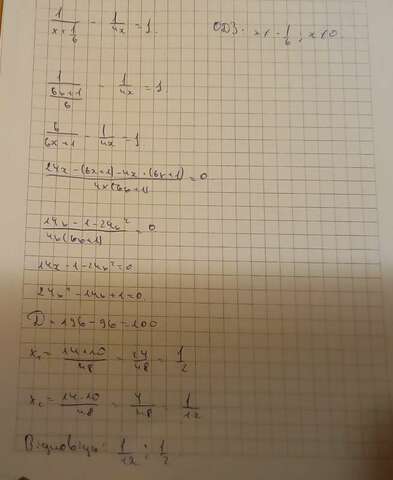 1/(x+1/6) - 1/4x = 1. ОДЗ: x≠-1/6; x≠0.
1/((6x+1)/6) - 1/4x = 1.
6/(6x+1) - 1/4x = 1
(24x-(6x+1)-4x·(6x+1))/(4x(6x+1)) = 0
(14x-1-24x²)/(4x(6x+1)) = 0
14x-1-24x²=0
24x²-14x+1=0
D=196-96=100
x₁=(14+10)/48=24/48=1/2
x₂=(14-10)/48=4/48=1/12
Відповідь: 1/12; 1/2